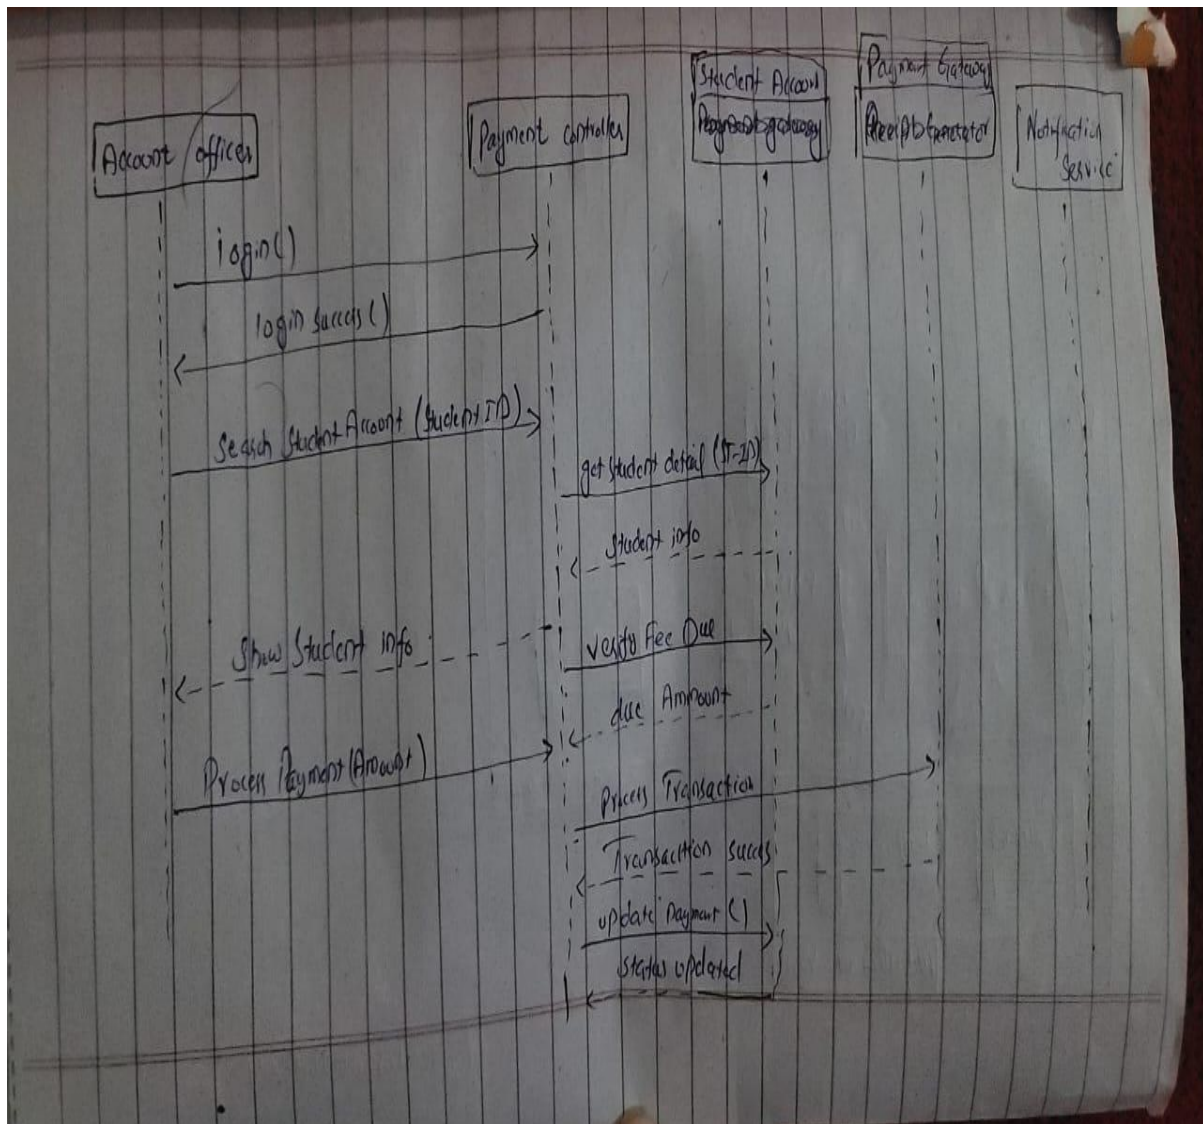 Account officer
Payment controller
Student Account
Payment Gateway
Notification
Service
login()
login success()
Search Student Account (Student ID)
get student detail (ST-ID)
Student info
Show Student info
verify Fee Due
due Ammount
Process Payment (Amount)
Process Transaction
Transacition succes
update payment ()
Status updated